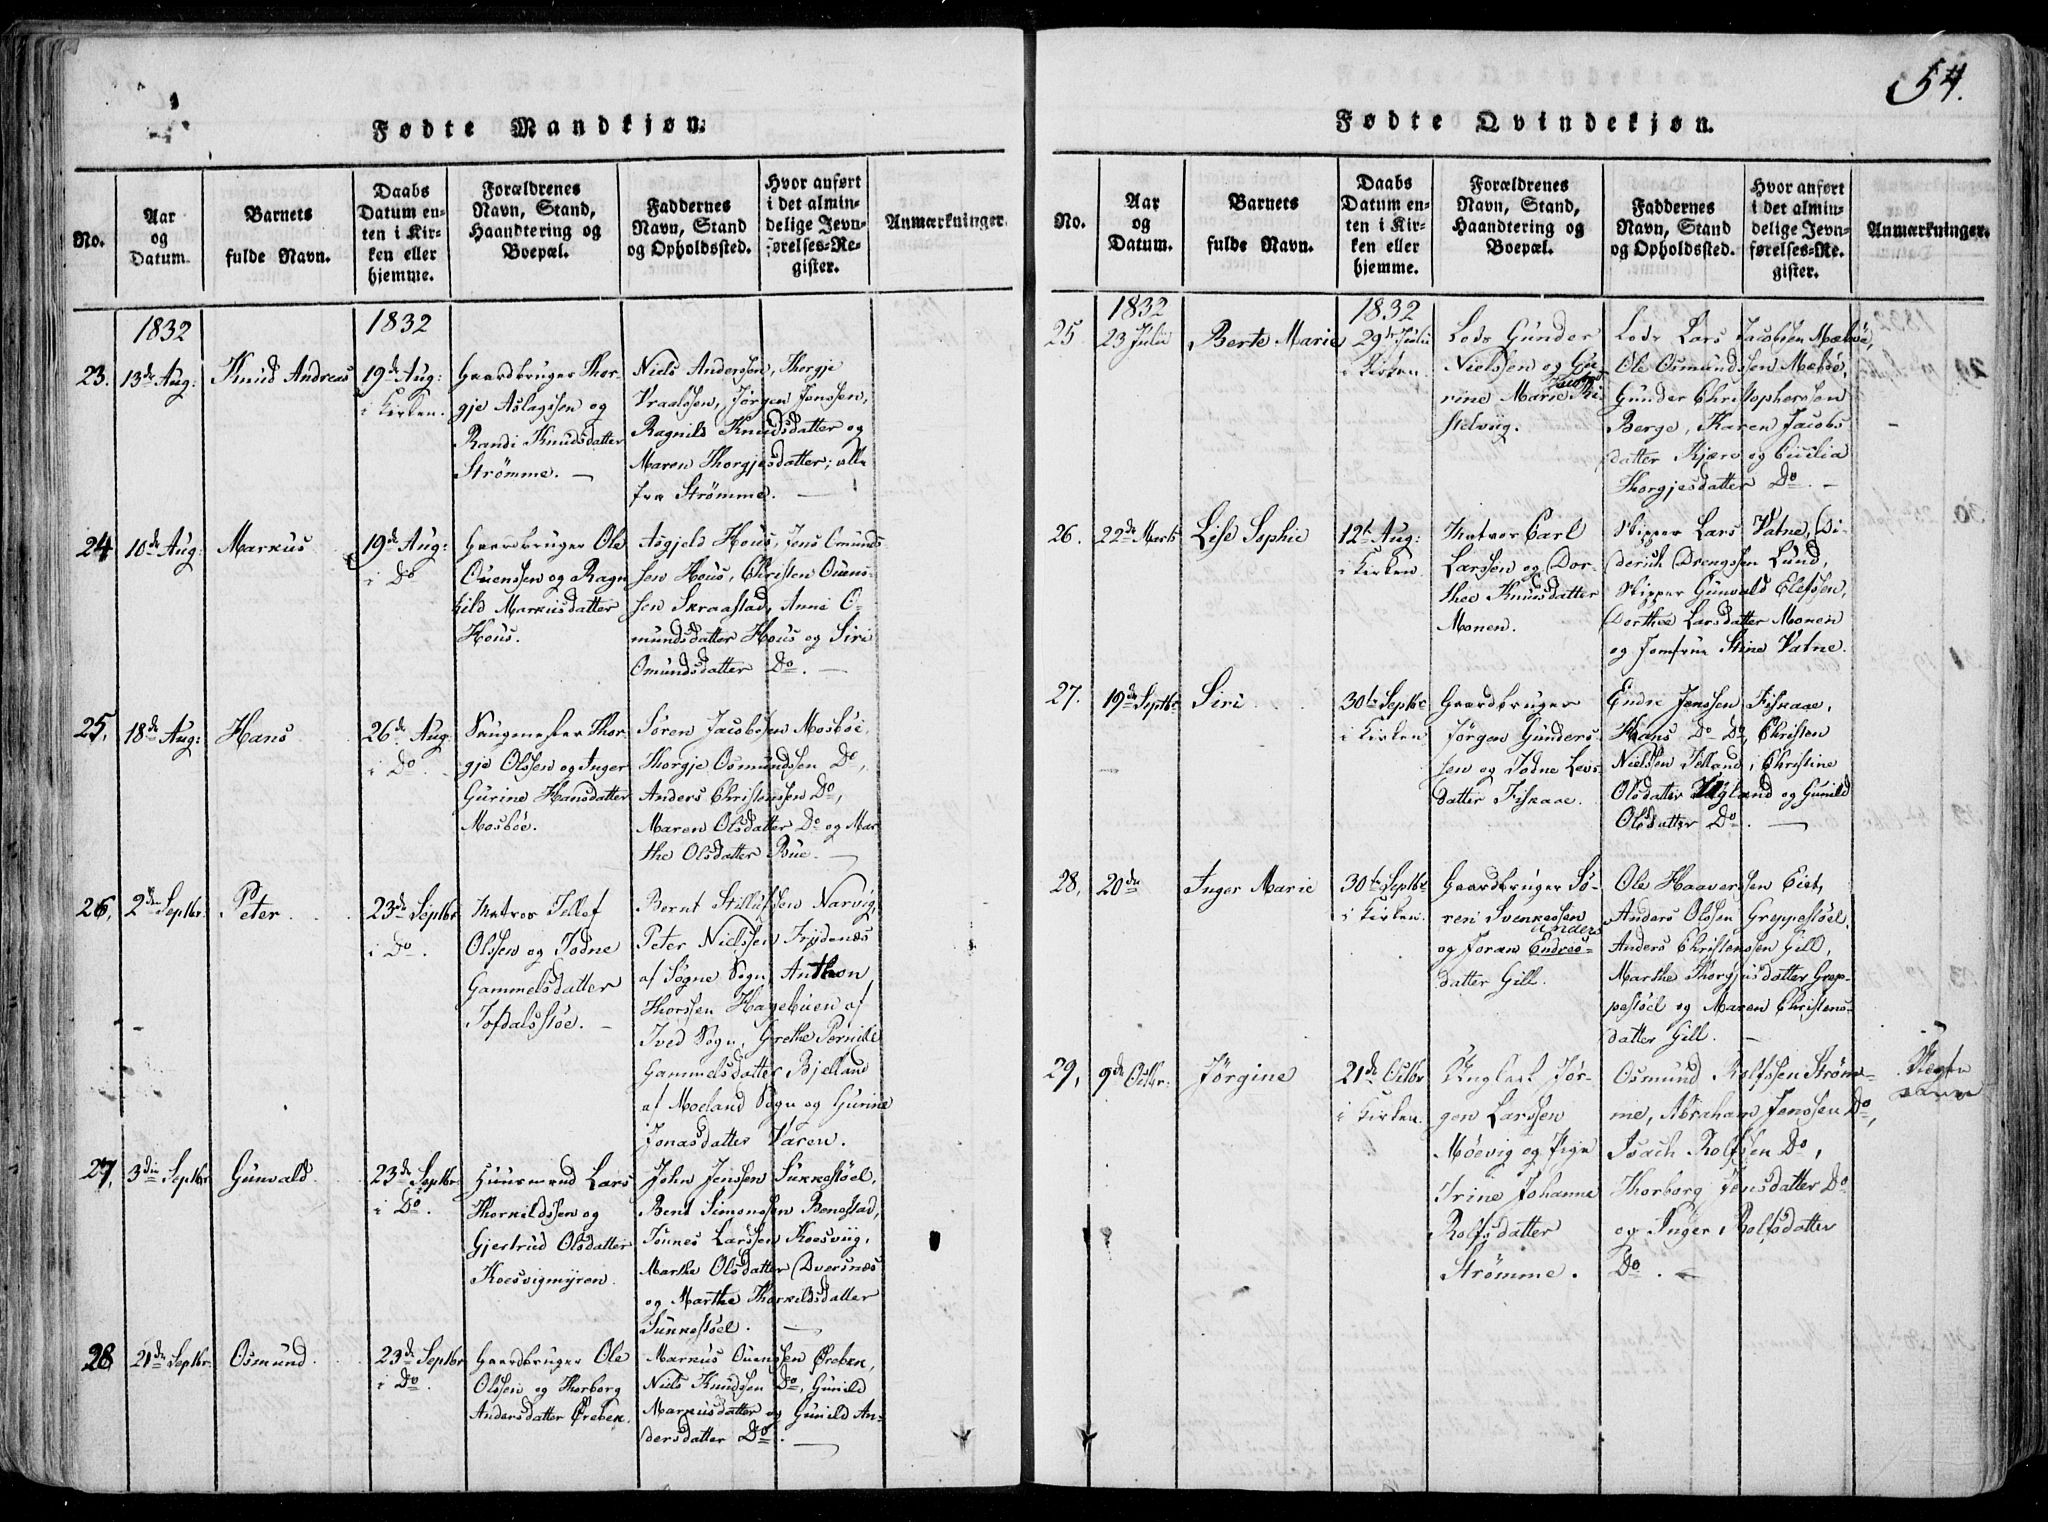 54.
Fødte Mandkjøn.
No.
Aar
og
Datum.
Barnets
fulde Navn.
Daabs
Datum en-
ten i Kir-
ken eller
hjemme.
Forældrenes
Navn, Stand,
Haandtering og
Boepæl.
Faddernes
Navn, Stand
og Opholdssted.
Hvor anført
i det almin-
delige Jevn-
førelses-Re-
gister.
Anmærkninger.
1832
1832
23.
13de Aug:
Knud Andreas
19de Aug:
i Kirken.
Gaardbruger Thor-
gje Aslagssen og
Randi Knudsdatter
Strömme. —
Niels Anderssen, Thorgje
Vraalssen, Jörgen Jenssen,
Ragnild Knudsdatter og
Maren Thorgjesdatter; alle
fra Strömme. —
24
10de Aug:
Markus
19de Aug:
i Do
Gaardbruger Ole
Ouenssen og Ragn
hild Markusdatter
Hous.
Asgjeld Hous, Jens Omunds
sen Hous, Christen Ouens-
sen Skraastad, Anne O-
mundsdatter Hous og Siri
Omundsdatter Do. —
25,
18de Aug:
Hans
26de Aug
i Do
Thor-
gje Olssen og Inger
Gurine Hansdatter
Mosböe.
Sören Jacobssen Mosböe,
Thorgje Osmundssen Do,
Anders Christenssen Do,
Maren Olsdatter Do og Mar
the Olsdatter Bue. —
26,
2den Septbr.
Peter
23de Septbr
i Do.
Matros Tellef
Olssen og Todne
Gammelsdatter
Tofdalsstöe. —
Bernt Narvig,
Peter Nielssen Frydenæs
af Søgne Sogn, Anthon
Thorssen Hagebuen af
Tved Sogn, Grethe Pernille
Gammelsdatter Bjelland
af Moeland Sogn og Gurine
Jonasdatter Varen.
27,
3die Septbr
Gunvald
23de Septbr
i Do.
Huusmand Lars
Thorkildssen og
Gjertrud Olsdatter
Koesvigmyren.
John Jenssen Sukkestöel,
Bent Simonssen Benestad,
Tönnes Larssen Koesviig,
Marthe Olsdatter Dversnæs
og Marthe Thorkildsdatter
Sukkestöel. —
28
21de Septbr.
Osmund
23de Septbr
i Do.
Gaardbruger Ole
Olssen og Thorborg
Andersdatter Örebek.
Markus Ouenssen Örebek,
Niels Knudssen Do, Gunild
Markusdatter og Gunild An-
dersdatter Do. —
Fødte Qvindekjøn.
No.
Aar
og
Datum.
Barnets
fulde Navn.
Daabs
Datum en-
ten i Kir-
ken eller
hjemme.
Forældrenes
Navn, Stand,
Haandtering og
Boepæl.
Faddernes
Navn, Stand
og Opholdssted.
Hvor anført
i det almin-
delige Jevn-
førelses-Re-
gister.
Anmærkninger.
1832
1832
25.
23 Julii
Berte Marie
29de Julii
i Kirken.
Lods Gunder
Nielssen og
rine Marie
Lods Lars Jacobsen Mæböe,
Ole Osmundssen Meböe,
Gunder Christopherssen
Berge, Karen Jacobs
datter Kjære og Cicilia
Thorgjesdatter Do. —
26.
22de Marts
Lise Sophie
12te Aug:
i Kirken.
Matros Carl
Larssen og Dor-
thee Knudsdatter
Monen.
Skipper Lars Vatne, Di-
derich Drengssen Lund,
Skipper Gunvald Elefssen,
Dorthee Larsdatter Monen
og Jomfrue Stine Vatne.
27.
19de Septbr
Siri
30te Septbr
i Kirken
Gaardbruger
Jörgen Gunders-
sen og Todne Lars
datter Fiskaae.
Endre Jenssen Fiskaae,
Hans Do Do, Christen
Nielssen Christine
Olsdatter og Gunild
Olsdatter Do. —
28,
20de
Inger Marie
30te Septbr
i Kirken.
Gaardbruger Sö-
ren Svenkessen
Anders
og Joran Endres-
datter Gill.
Ole Haaverssen Eiet,
Anders Olssen Greppestöel,
Anders Christenssen Gill,
Marthe Thorgjusdatter Grep-
pestöel og Maren Christens-
datter Gill. —
29,
9de Octbr.
Jörgine
21de Octbr
i Kirken.
Ungkarl Jör-
gen Larssen
Möevig og Pige
Trine Johanne
Rolfsdatter
Strömme.
Osmund Rolfssen Ström-
me, Abraham Jenssen Do,
Isach Rolfssen Do,
Thorborg Jensdatter Do
og Inger Rolfsdatter
Do. —